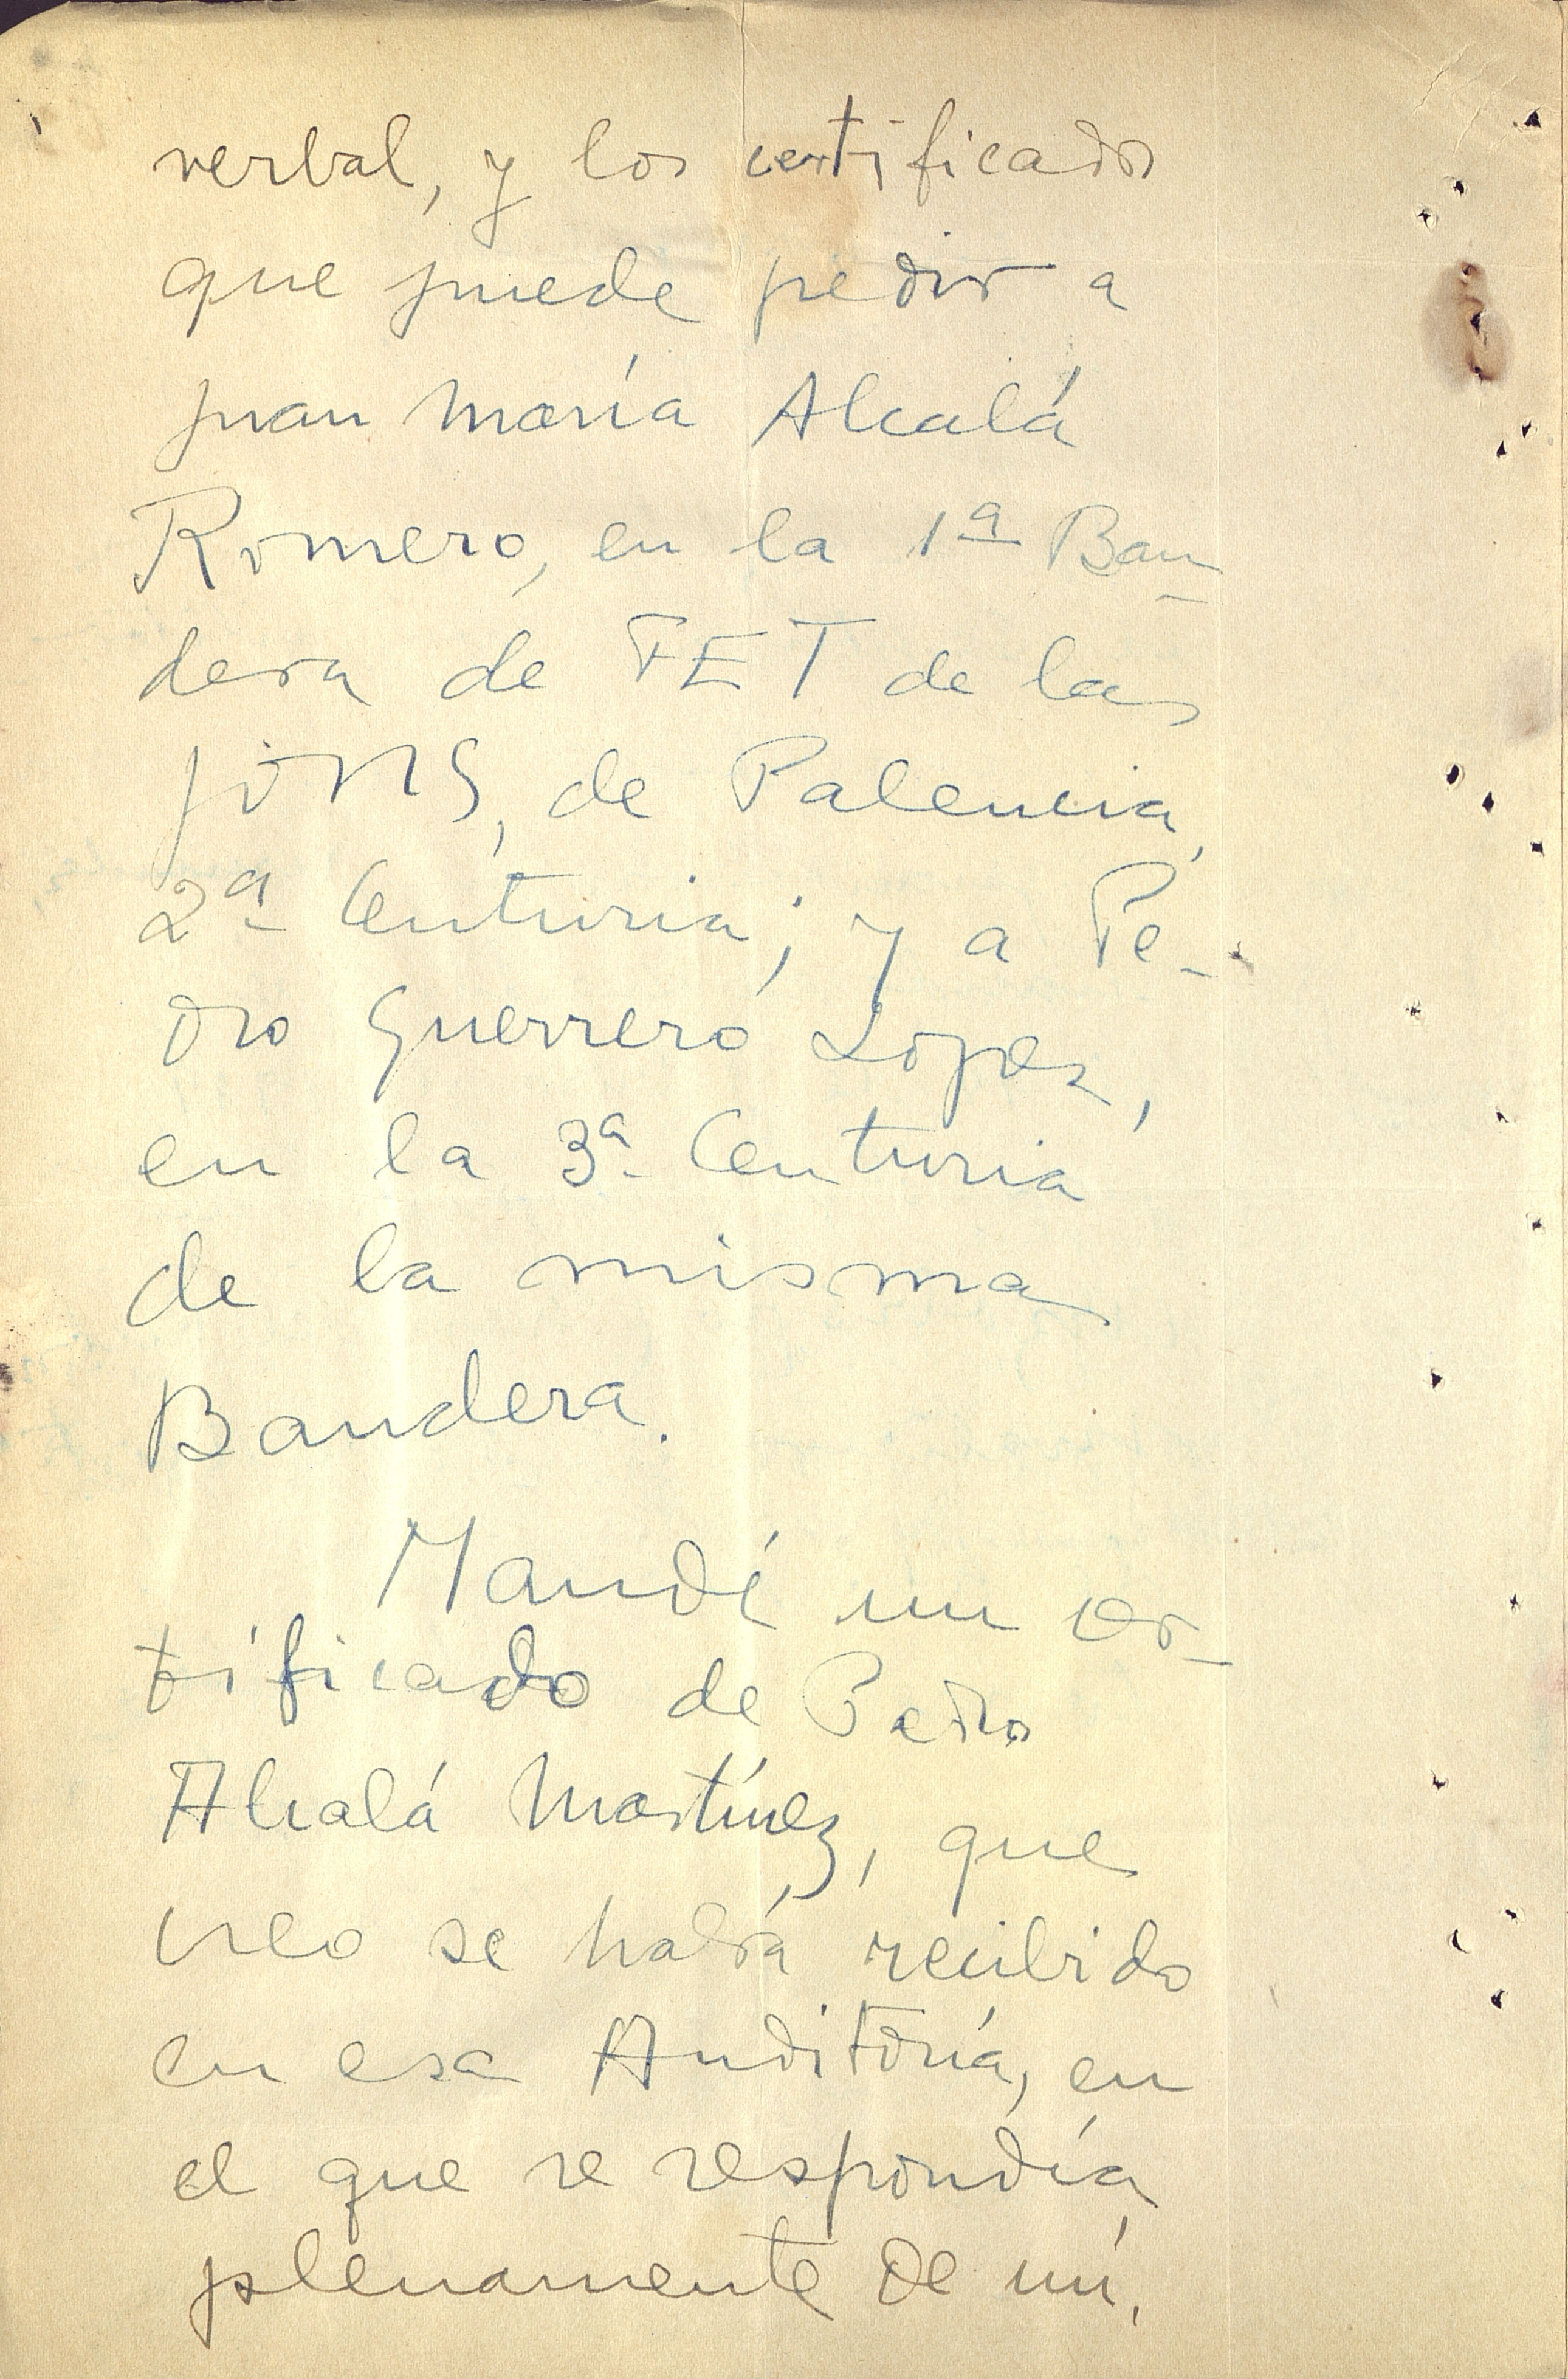 verbal, y los certificados
que puede pedir a
Juan María Alcalá
Romero, en la 1ª Ban-
dera de FET de las
JONS, de Palencia,
2ª Centuria; y a Pe-
dro Guerrero López,
en la 3ª Centuria
de la misma
Bandera.
Mandé un cer-
tificado de Pedro
Alcalá Martínez, que
creo se habrá recibido
en esa Auditoría, en
el que se respondía
plenamente de mí.